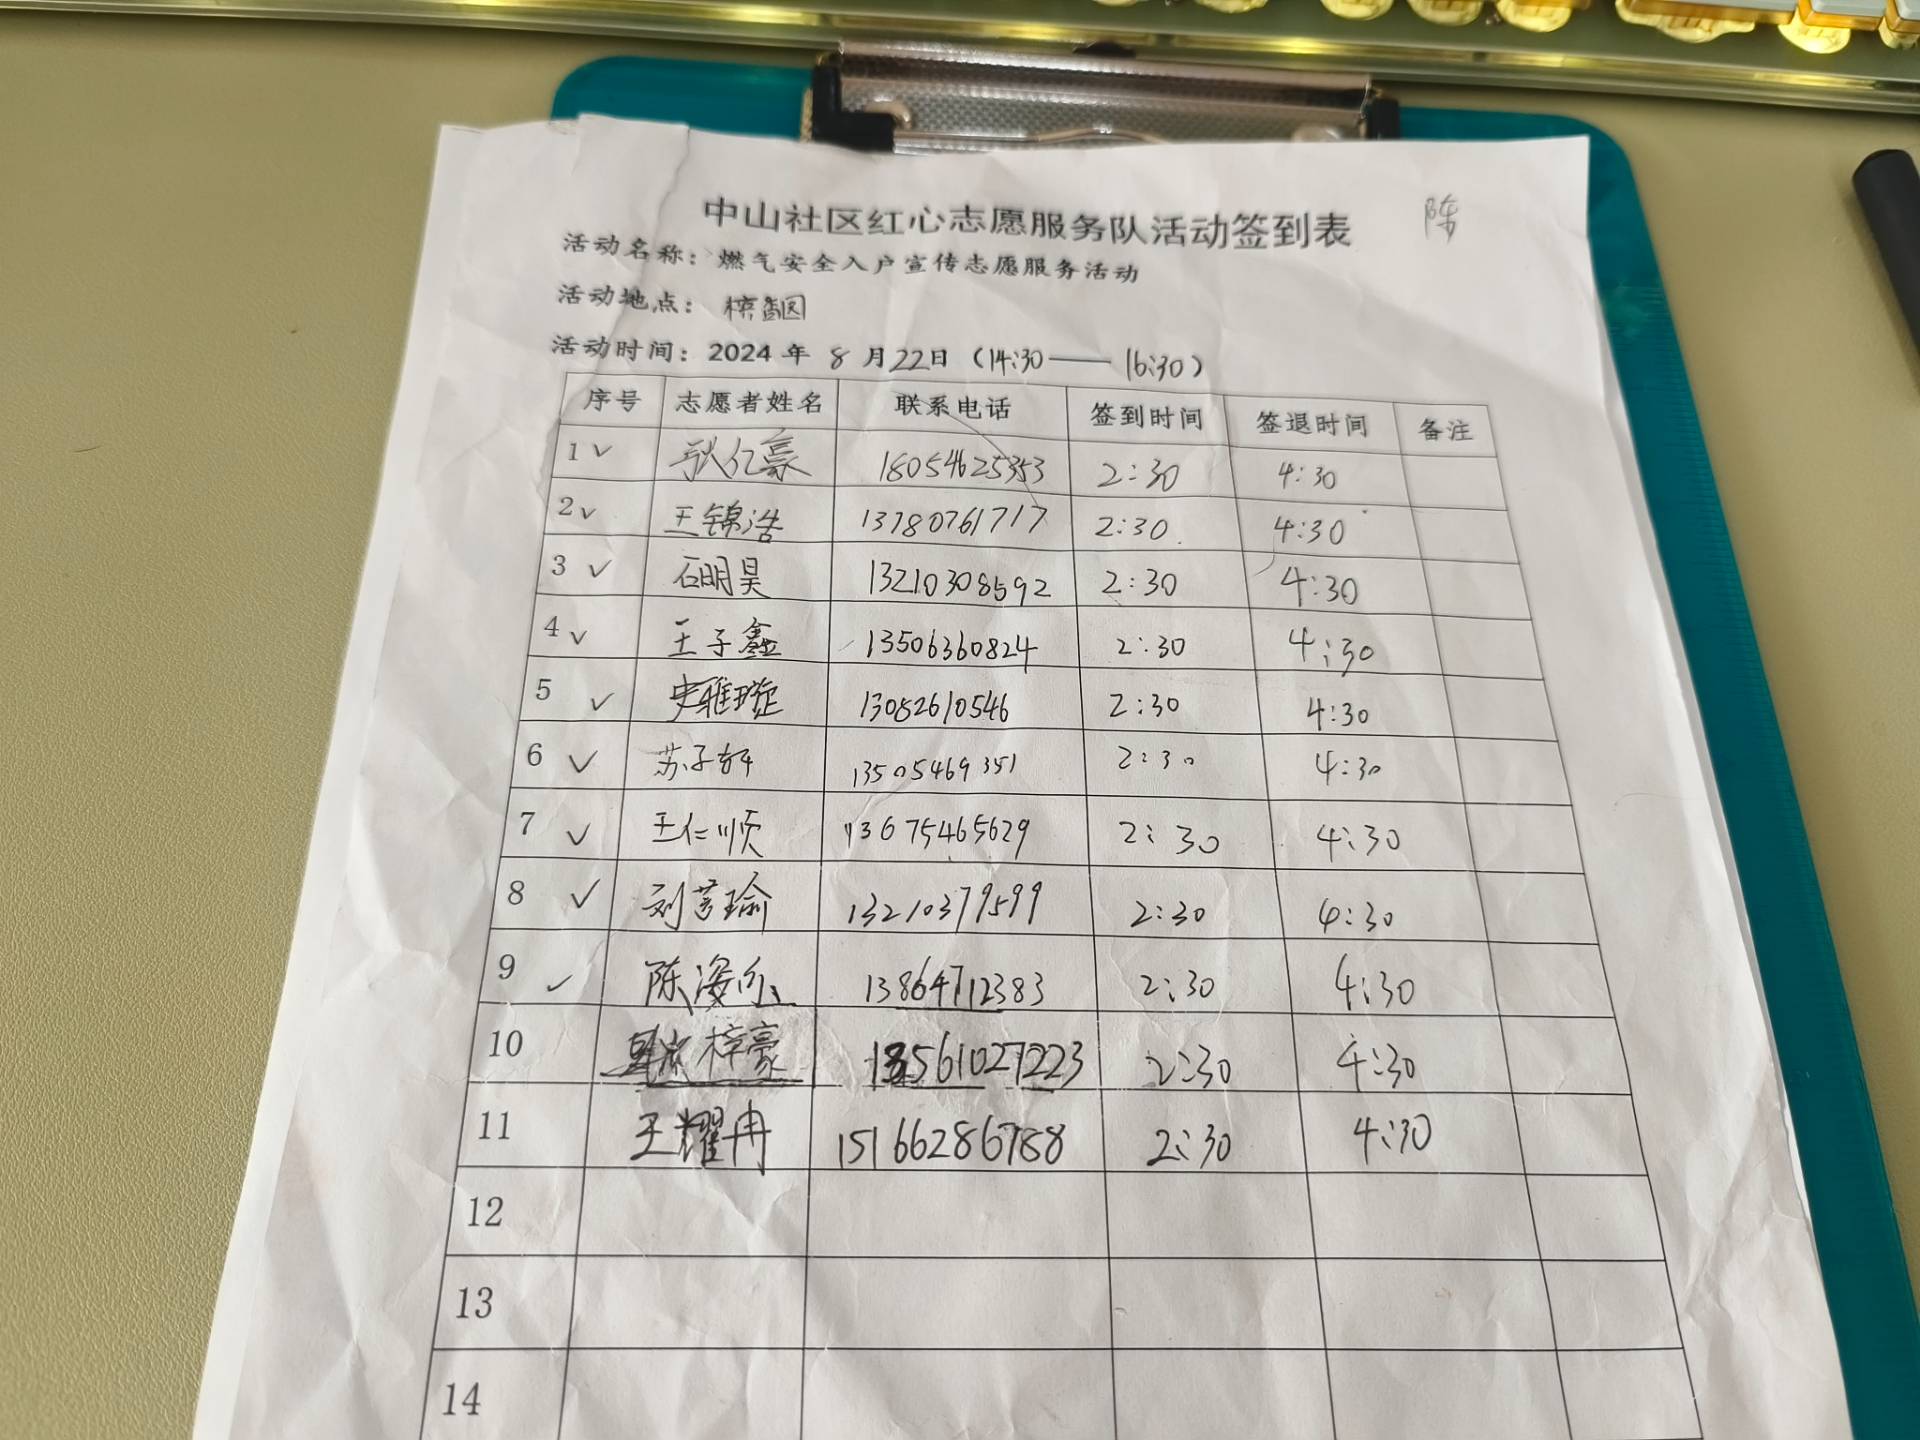 中山社区红心志愿服务队活动签到表 陈
活动名称：燃气安全入户宣传志愿服务活动
活动地点：槟香园
活动时间：2024 年 8 月 22日（14:30——16:30）
序号 志愿者姓名 联系电话 签到时间 签退时间 备注
1 ✓ 耿亿豪 18054625353 2:30 4:30
2 ✓ 王锦浩 13780761717 2:30 4:30
3 ✓ 石明昊 13210308592 2:30 4:30
4 ✓ 王子鑫 13506360824 2:30 4:30
5 ✓ 史雅璇 13082610546 2:30 4:30
6 ✓ 苏子轩 13505469351 2:30 4:30
7 ✓ 王仁顺 13675465629 2:30 4:30
8 ✓ 刘芸瑜 13210379599 2:30 4:30
9 ✓ 陈 13864712383 2:30 4:30
10 梓豪 561027223 2:30 4:30
11 王耀冉 15166286788 2:30 4:30
12
13
14